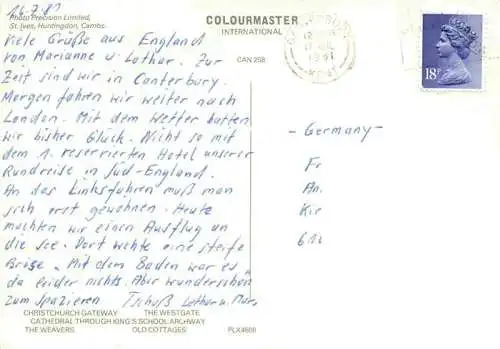 16.7.81
Photo Precision Limited,
St. Ives, Huntingdon, Cambs.
COLOURMASTER
INTERNATIONAL
CAN 258
Viele Grüße aus England
von Marianne u. Lothar. Zur
Zeit sind wir in Canterbury.
Morgen fahren wir weiter nach
London. Mit dem Wetter hatten
wir bisher Glück. Nicht so mit
dem 1. reservierten Hotel unserer
Rundreise in Süd-England.
An das Linksfahren muß man
sich erst gewöhnen. Heute
machten wir einen Ausflug an
die See. Dort wehte eine steife
Brise. Mit dem Baden war es
da leider nichts. Aber wunderschön
zum Spazieren. Tschüß Lothar u.
CHRISTCHURCH GATEWAY THE WESTGATE
CATHEDRAL THROUGH KING'S SCHOOL ARCHWAY
THE WEAVERS OLD COTTAGES PLX4608
18P
1981
- Germany -
Fr
An.
Kir